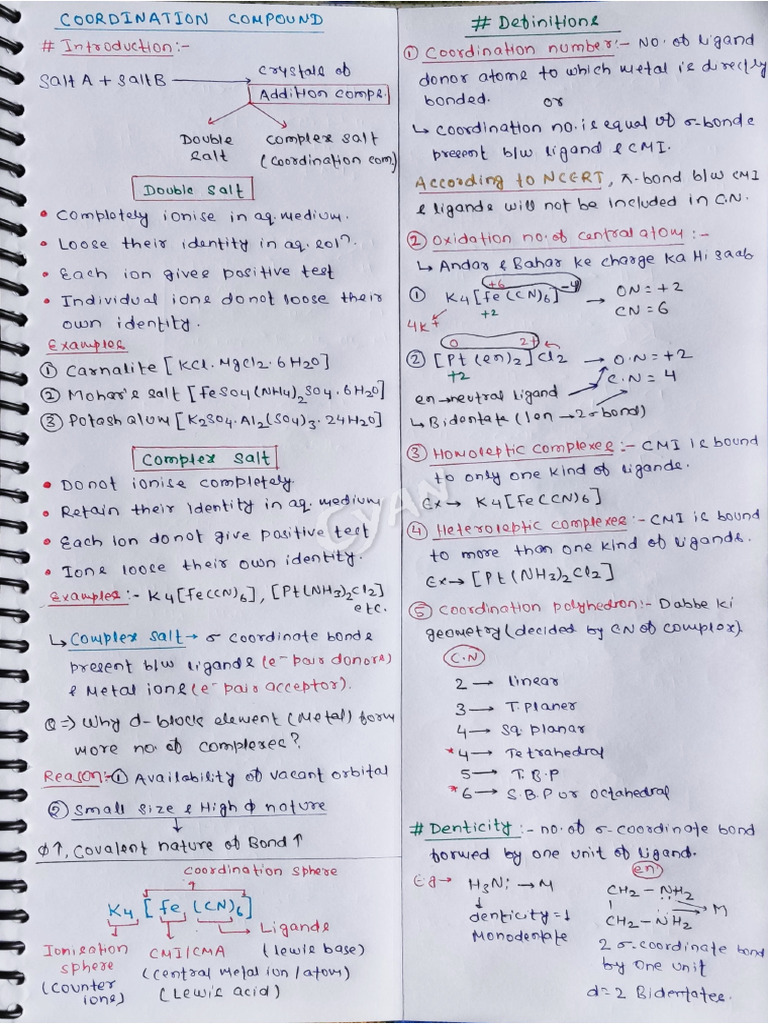 COORDINATION COMPOUND
# Introduction:-
Salt A + Salt B → Crystals of
Addition comps.
Double Salt
Complex salt (Coordination com)
Double Salt
• Completely ionise in aq. medium.
• Loose their identity in aq. solⁿ.
• Each ion gives positive test
• Individual ions do not loose their
own identity.
Examples
① Carnalite [KCl. MgCl2 . 6H2O]
② Mohar's salt [FeSO4(NH4)2SO4 . 6H2O]
③ Potash alum [K2SO4. Al2(SO4)3. 24H2O]
Complex Salt
• Do not ionise completely.
• Retain their Identity in aq. medium
• Each Ion do not give positive test
• Ions loose their own identity.
Examples:- K4[Fe(CN)6], [Pt(NH3)2Cl2]
etc.
↳ Complex Salt → σ coordinate bonds
present b/w ligands (e⁻ pair donors)
& Metal ions (e⁻ pair acceptor).
Q ⇒ Why d-block element (Metal) form
more no. of complexes?
Reason:- ① Availability of vacant orbital
② Small size & High ϕ nature
↓
ϕ↑, Covalent nature of Bond ↑
coordination sphere
K4 [Fe (CN)6]
Ligands
(lewis base)
Ionisation sphere
(Counter ions)
CMI/CMA
(Central metal ion / atom)
(Lewis acid)
# Definitions
① Coordination number:- No. of ligand
donor atoms to which metal is directly
bonded. or
↳ Coordination no. is equal of σ-bonds
present b/w ligand & CMI.
According to NCERT, π-bond b/w CMI
& ligands will not be included in C.N.
② Oxidation no. of central atom:-
↳ Andar & Bahar ke charge ka Hi saab
+6 -4
① K4[Fe(CN)6] → ON = +2
CN = 6
4K⁺ +2
0 2+
② [Pt(en)2]Cl2 → O.N = +2
C.N = 4
+2
en → neutral ligand
↳ Bidentate (1en → 2σ-bond)
③ Homoleptic complexes:- CMI is bound
to only one kind of ligands.
Ex → K4[Fe(CN)6]
④ Heteroleptic complexes:- CMI is bound
to more than one kind of ligands.
Ex → [Pt(NH3)2Cl2]
⑤ Coordination polyhedron:- Dabbe ki
geometry (decided by CN of complex).
C.N
2 → linear
3 → T. planer
4 → Sq. planar
*4 → Tetrahedral
5 → T.B.P
*6 → S.B.P or octahedral
# Denticity:- no. of σ-coordinate bond
formed by one unit of ligand.
Eg → H3N: → M
denticity = 1
Monodentate
en:
CH2 - NH2
CH2 - NH2
→ M
2 σ-coordinate bond
by one unit
d = 2 Bidentates.
GYAN